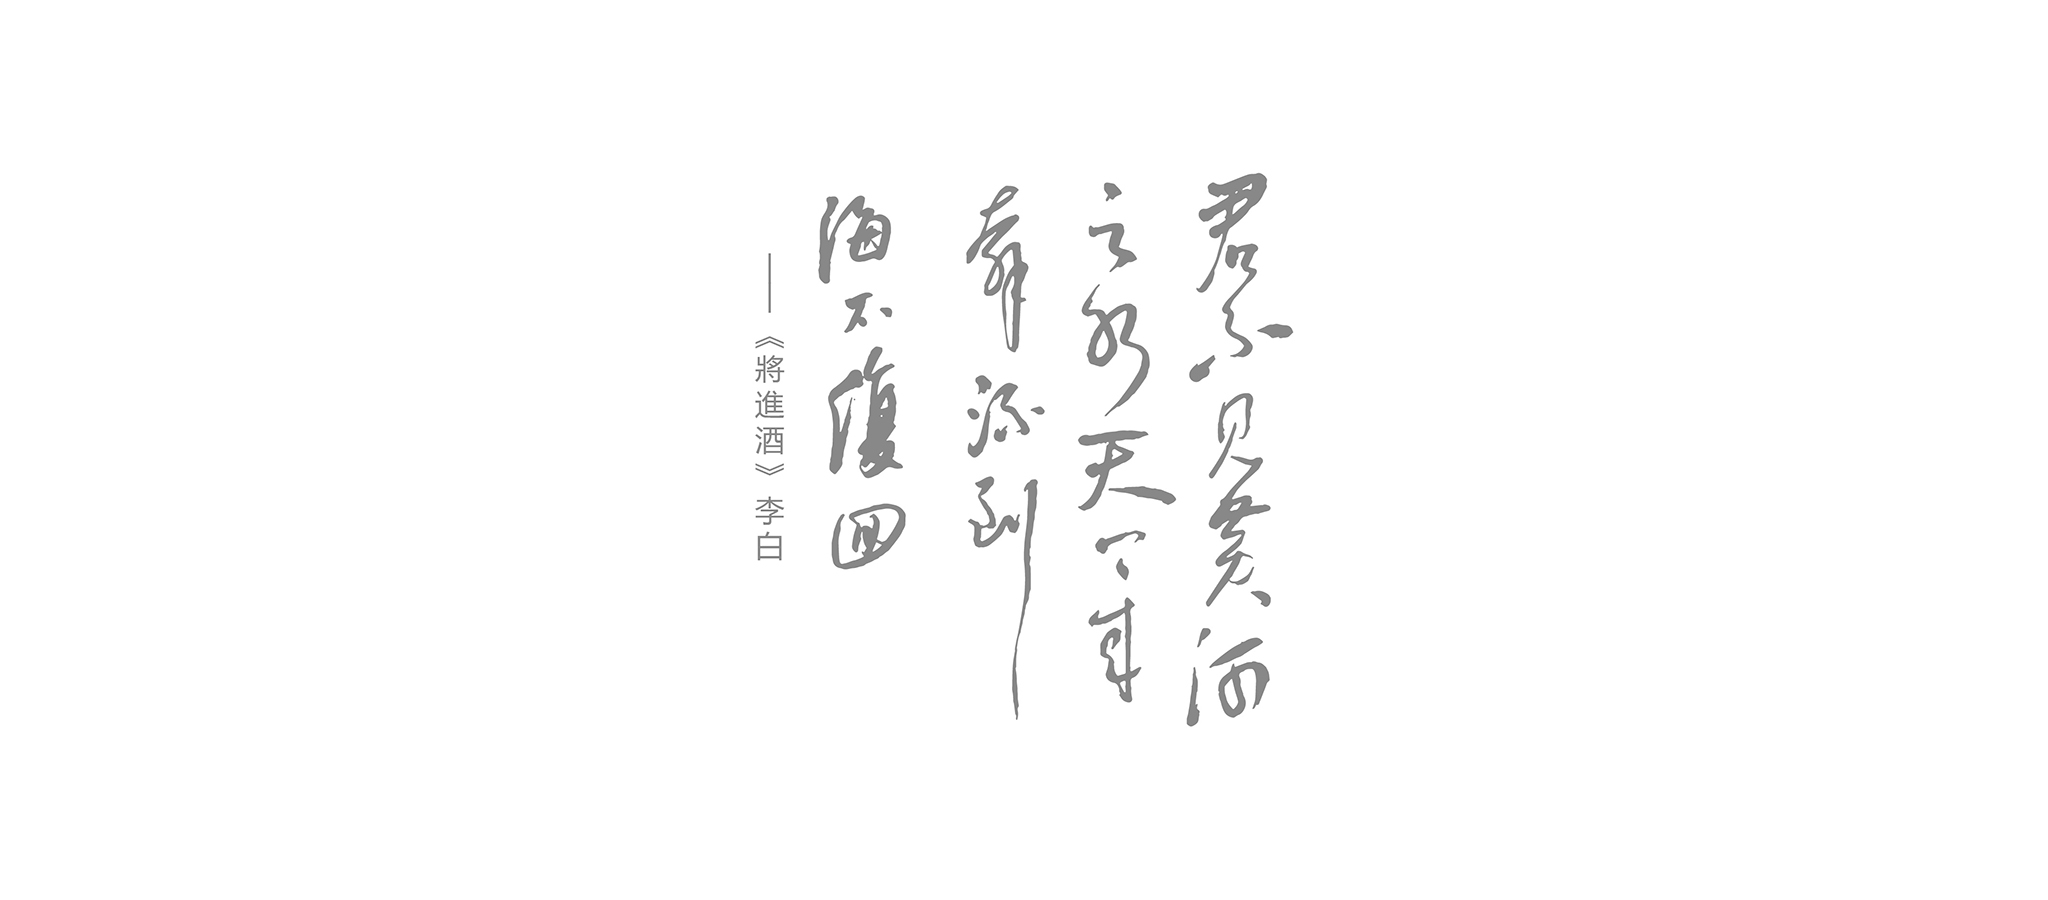 君不見黃河
之水天上來
奔流到
海不復回
——《將進酒》李白